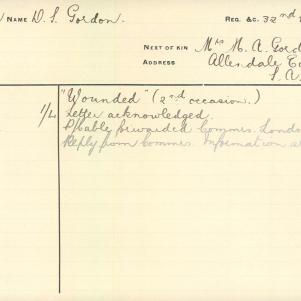 NAME D. S. Gordon.
REG. &C. 32nd
NEXT OF KIN Mrs M. A. Gord
ADDRESS Allendale
S. A.
"Wounded" (2nd occasion.)
1/4 Letter acknowledged.
P/table forwarded Commrs. Lond
Reply from Commrs. Information